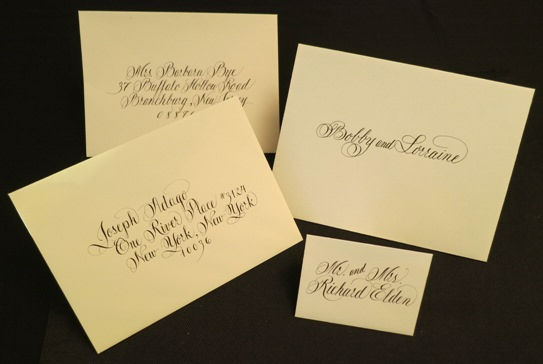 Mrs. Barbara Bye
37 Buffalo Hollow Road
Branchburg, New Jersey
Bobby and Lorraine
Joseph Adago
One River Place #3124
New York, New York
10036
Mr. and Mrs.
Richard Elden